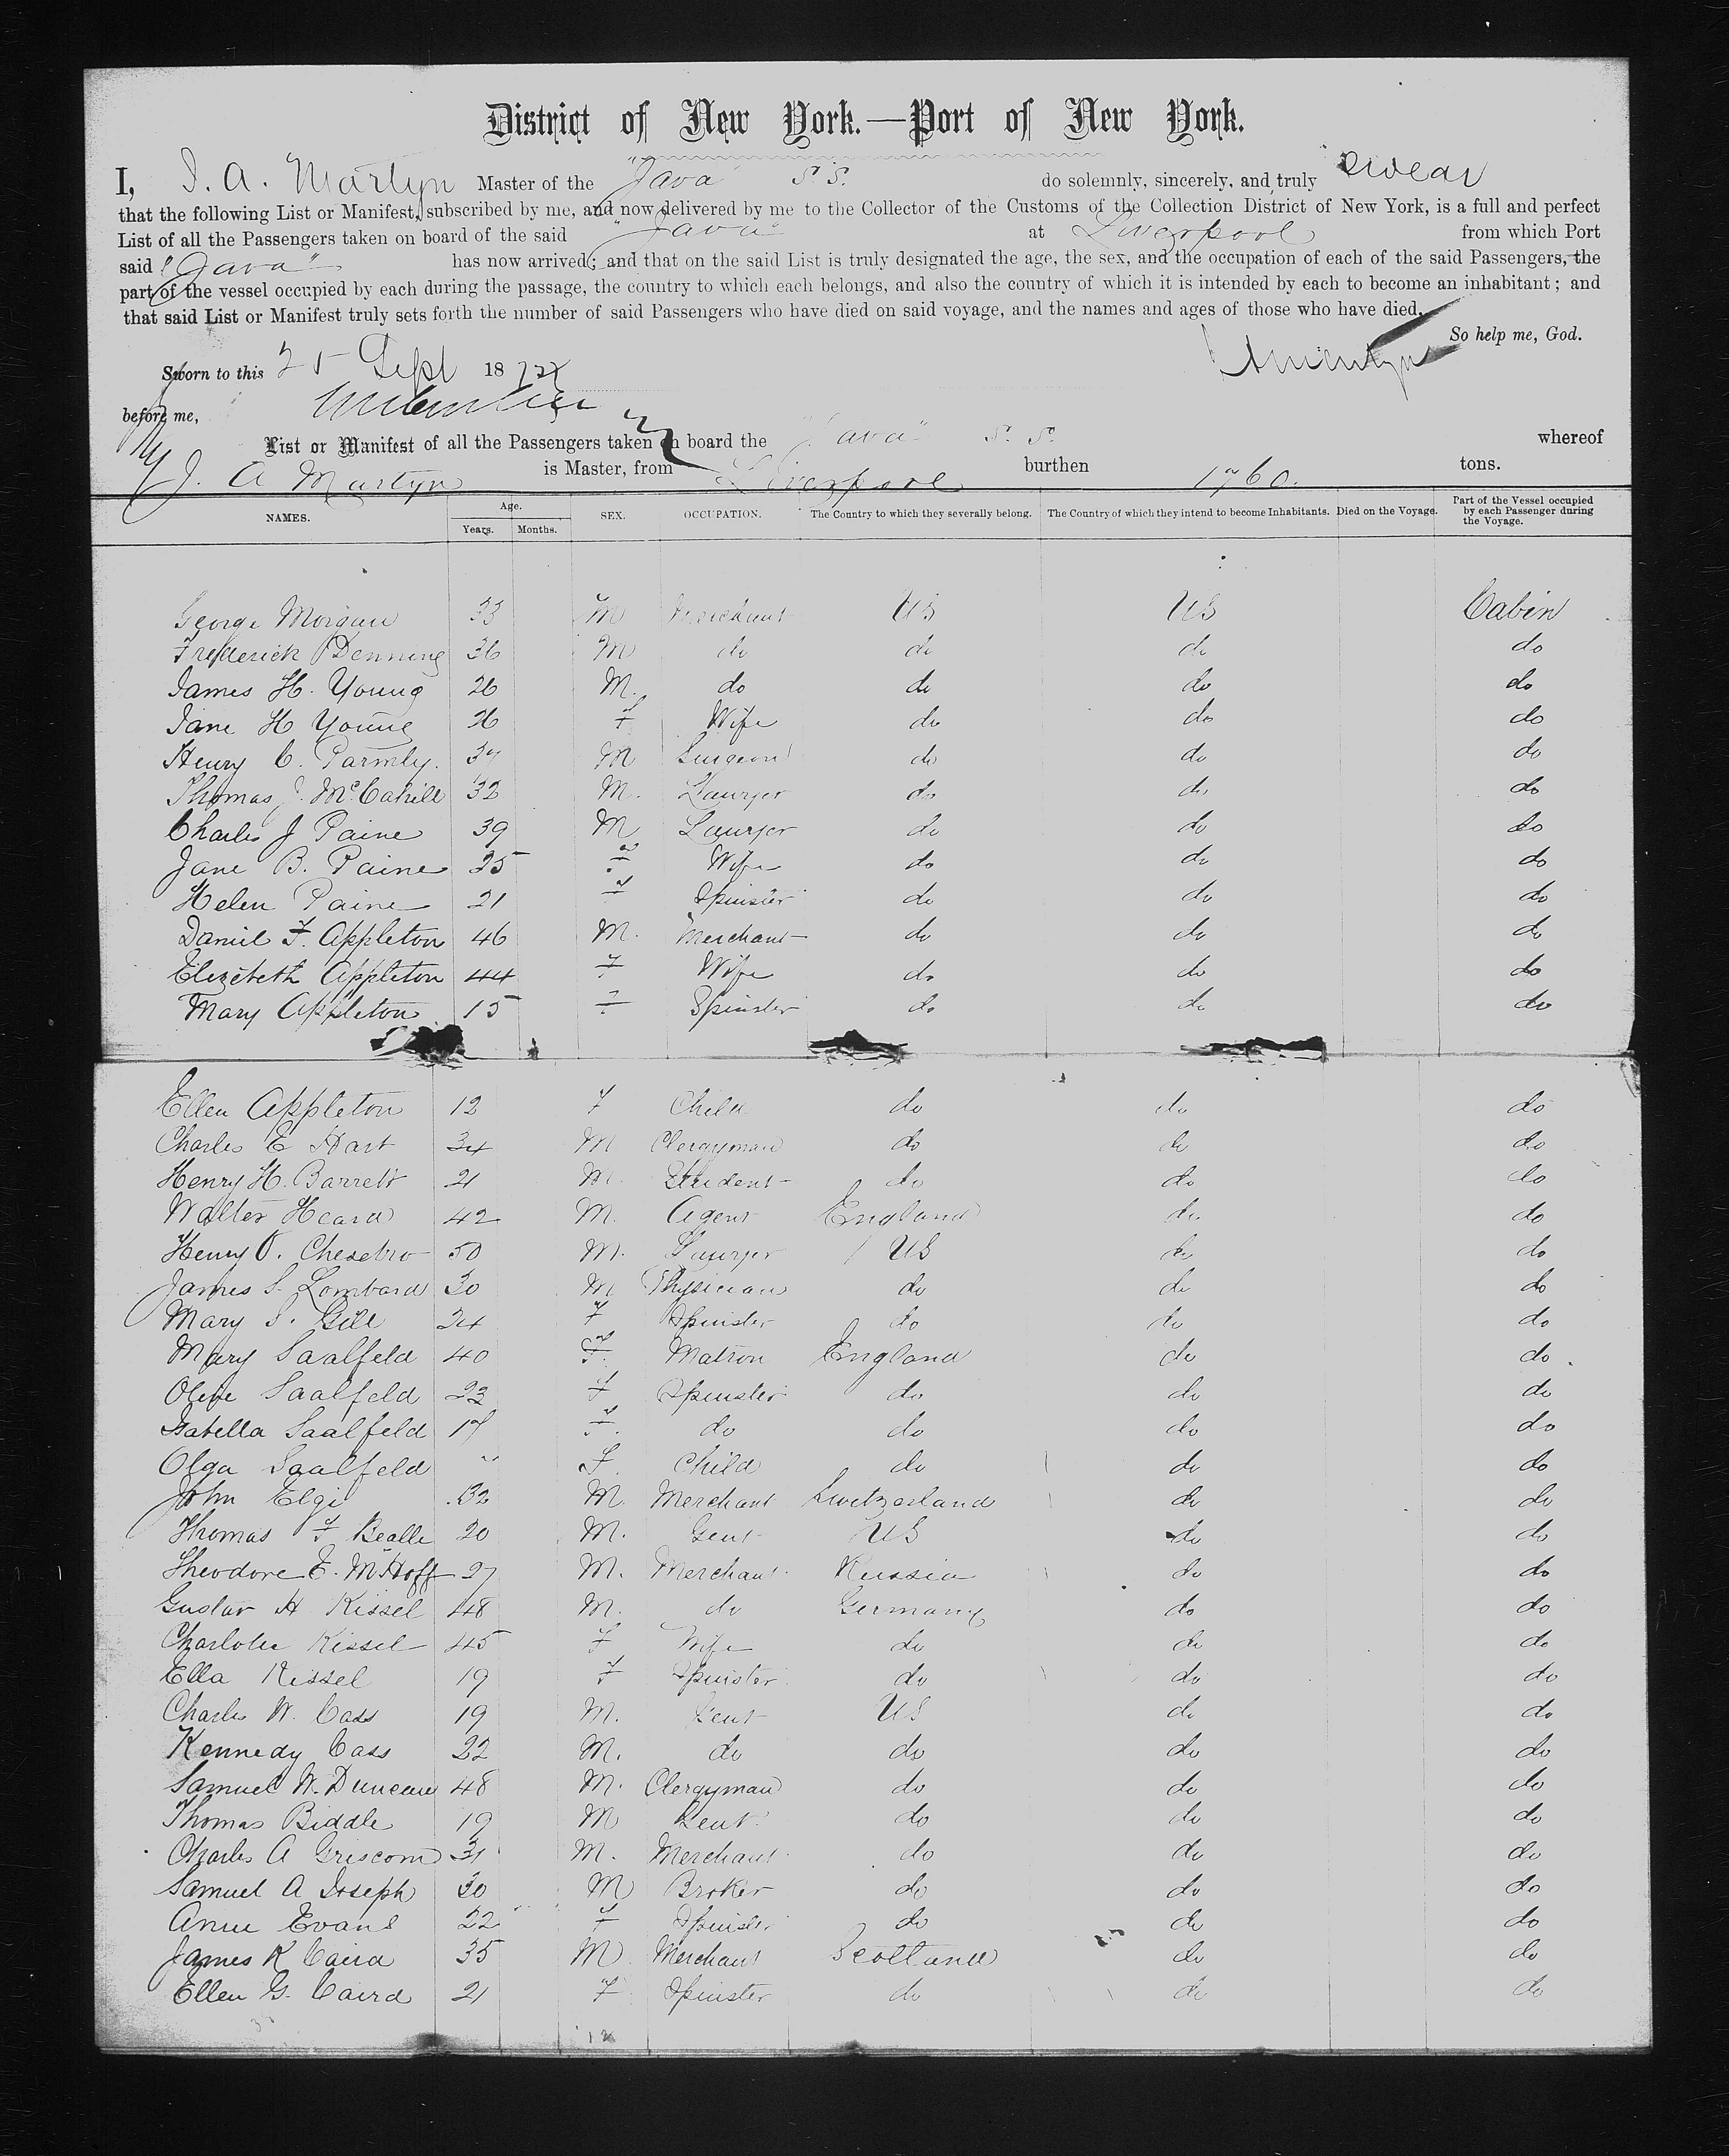 District of New York.—Port of New York.
I, J. A. Martyn Master of the "Java" S S. do solemnly, sincerely, and truly swear
that the following List or Manifest, subscribed by me, and now delivered by me to the Collector of the Customs of the Collection District of New York, is a full and perfect
List of all the Passengers taken on board of the said "Java" at Liverpool from which Port
said "Java" has now arrived; and that on the said List is truly designated the age, the sex, and the occupation of each of the said Passengers, the
part of the vessel occupied by each during the passage, the country to which each belongs, and also the country of which it is intended by each to become an inhabitant; and
that said List or Manifest truly sets forth the number of said Passengers who have died on said voyage, and the names and ages of those who have died.
So help me, God.
Sworn to this 25 Sept 1872
before me,
List or Manifest of all the Passengers taken on board the "Java" S. S. whereof
J. A Martyn is Master, from Liverpool burthen 1760. tons.
NAMES. Age. Years. Months. SEX. OCCUPATION. The Country to which they severally belong. The Country of which they intend to become Inhabitants. Died on the Voyage. Part of the Vessel occupied by each Passenger during the Voyage.
George Morgan 33 M Merchant US US Cabin
Frederick Denning 36 M do do do do
James H. Young 26 M. do do do do
Jane H Young 26 F Wife do do do
Henry C. Parmly. 37 M Surgeon do do do
Thomas J. McCahill 32 M. Lawyer do do do
Charles J Paine 39 M Lawyer do do do
Jane B. Paine 25 F Wife do do do
Helen Paine 21 F Spinster do do do
Daniel F. Appleton 46 M. Merchant do do do
Elizebeth Appleton 44 F Wife do do do
Mary Appleton 15 F Spinster do do do
Ellen Appleton 12 F Child do do do
Charles E Hart 34 M Clergyman do do do
Henry H. Barrett 21 M. Student do do do
Walter Heard 42 M. Agent England do do
Henry O. Chesebro 50 M. Lawyer US do do
James S. Lombard 30 M Physician do do do
Mary S. Gill 24 F Spinster do do do
Mary Saalfeld 40 F. Matron England do do
Olive Saalfeld 23 F Spinster do do do
Isabella Saalfeld 17 F. do do do do
Olga Saalfeld " F. Child do do do
John Elgi 32 M. Merchant Switzerland do do
Thomas F Bealle 20 M. Gent US do do
Theodore E. McHoff 27 M. Merchant Russia do do
Gustav H Kissel 48 M. do Germany do do
Charlotte Kissel 45 F Wife do do do
Ella Kissel 19 F Spinster do do do
Charles W. Cass 19 M. Gent US do do
Kennedy Cass 22 M. do do do do
Samuel W. Duncan 48 M. Clergyman do do do
Thomas Biddle 19 M Gent do do do
Charles A Griscom 31 M. Merchant do do do
Samuel A Joseph 30 M Broker do do do
Annie Evans 22 F Spinster do do do
James K Caird 35 M Merchant Scotland do do
Ellen G. Caird 21 F Spinster do do do